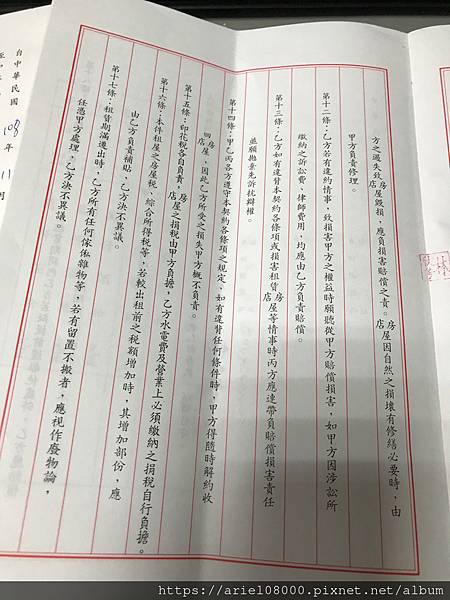 方之過失致房店屋毀損,應負損害賠償之責。房店屋因自然之損壞有修繕必要時,由
甲方負責修理。
第十二條:乙方若有違約情事,致損害甲方之權益時願聽從甲方賠償損害,如甲方因涉訟所
繳納之訴訟費、律師費用,均應由乙方負責賠償。
第十三條:乙方如有違背本契約各條項或損害租賃房店屋等情事時丙方應連帶負賠償損害責任
並願拋棄先訴抗辯權。
第十四條:甲乙丙各方遵守本契約各條項之規定,如有違背任何條件時,甲方得隨時解約收
回房店屋,因此乙方所受之損失甲方概不負責。
第十五條:印花稅各自負責,房店屋之捐稅由甲方負擔,乙方水電費及營業上必須繳納之捐稅自行負擔。
第十六條:本件租屋之房屋稅、綜合所得稅等,若較出租前之稅額增加時,其增加部份,應
由乙方負責補貼,乙方決不異議。
第十七條:租賃期滿遷出時,乙方所有任何傢俬雜物等,若有留置不搬者,應視作廢物論,
任憑甲方處理,乙方決不異議。
中華民國 108 年 11 月
https://ariel08000.pixnet.net/album